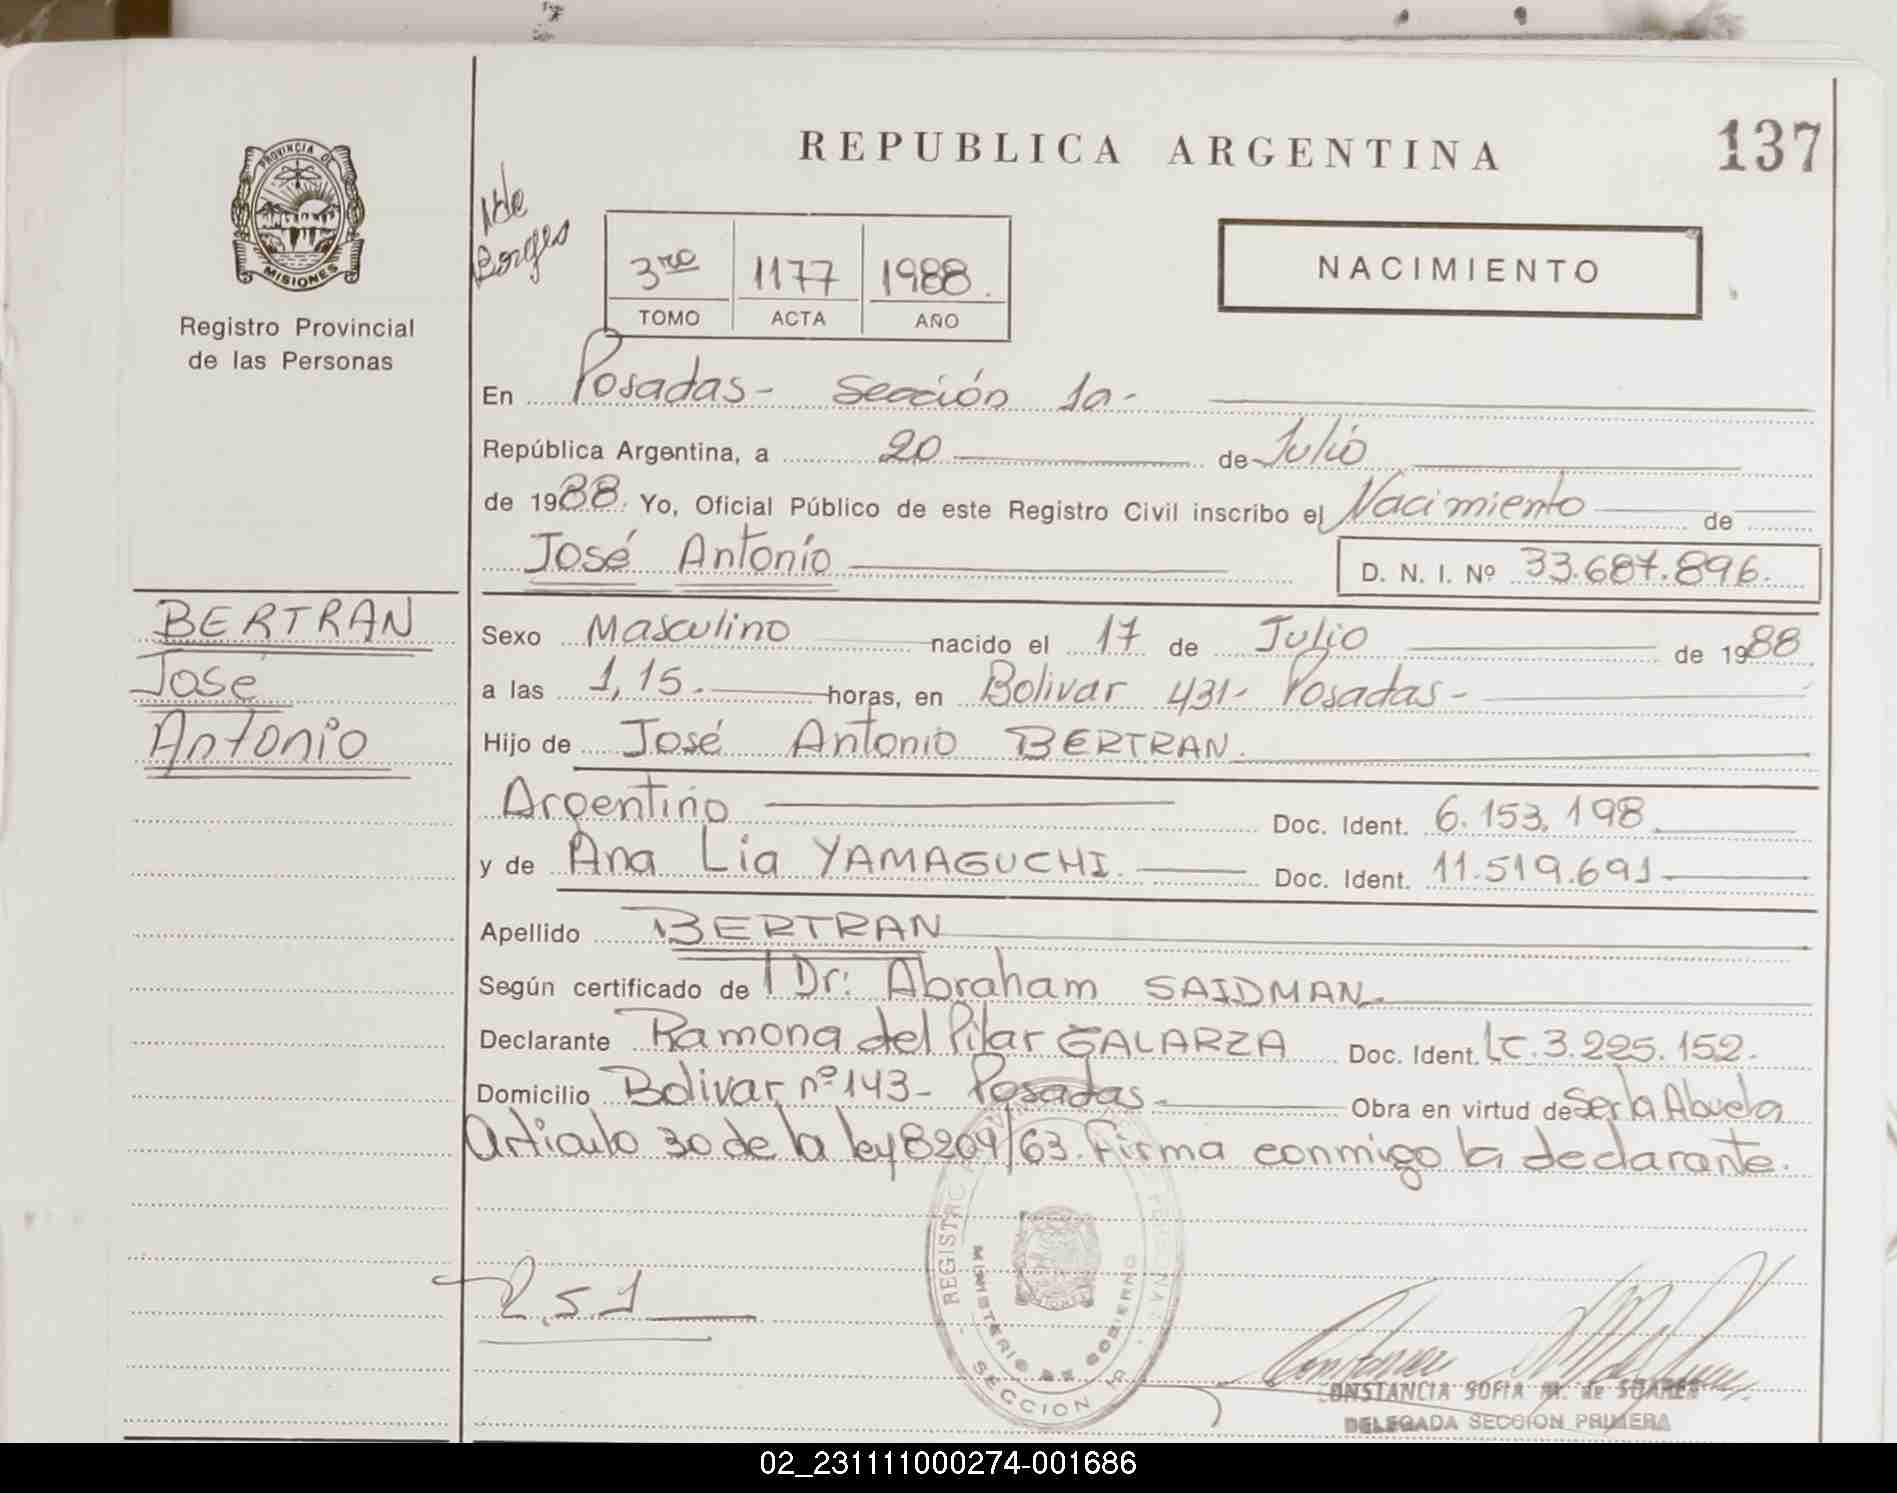 REPUBLICA ARGENTINA
137
PROVINCIA DE
MISIONES
Registro Provincial
de las Personas
Borges
3ro 1177 1988.
TOMO ACTA AÑO
NACIMIENTO
En Posadas- Sección 1a-
República Argentina, a 20 de Julio
de 1988. Yo, Oficial Público de este Registro Civil inscribo el Nacimiento de
José Antonio
D. N. I. Nº 33.687.896.
BERTRAN
José
Antonio
Sexo Masculino nacido el 17 de Julio de 1988
a las 1,15. horas, en Bolivar 431- Posadas-
Hijo de José Antonio BERTRAN.
Argentino Doc. Ident. 6.153.198
y de Ana Lia YAMAGUCHI. Doc. Ident. 11.519.691
Apellido BERTRAN
Según certificado de Dr: Abraham SAIDMAN.
Declarante Ramona del Pilar GALARZA Doc. Ident. LC.3.225.152.
Domicilio Bolivar nº 143- Posadas- Obra en virtud de Ser la Abuela
Articulo 30 de la ley 8204/63. Firma conmigo la declarante.
REGISTRO
MINISTERIO DE GOBIERNO
SECCION 1a
CONSTANCIA SOFIA M. de SUAREZ
DELEGADA SECCION PRIMERA
02_231111000274-001686